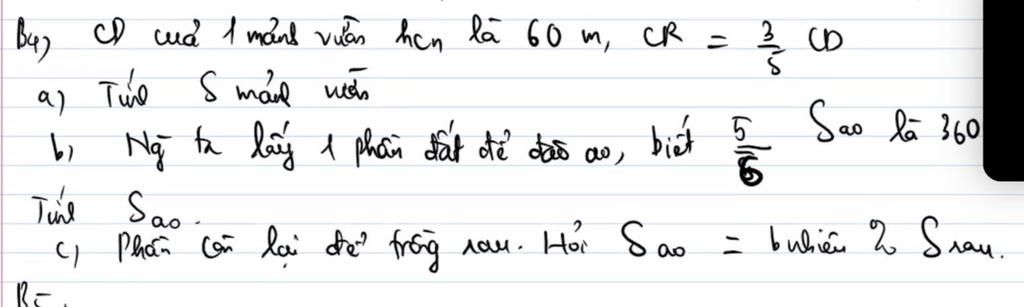 B4) CD của 1 mảnh vườn hcn là 60 m, CR = 3/5 CD
a) Tính S mảnh vườn
b) Ng ta lấy 1 phần đất để đào ao, biết 5/6 Sao là 360
Tính Sao.
c) Phần còn lại để trồng rau. Hỏi Sao = bnhiêu % Srau.